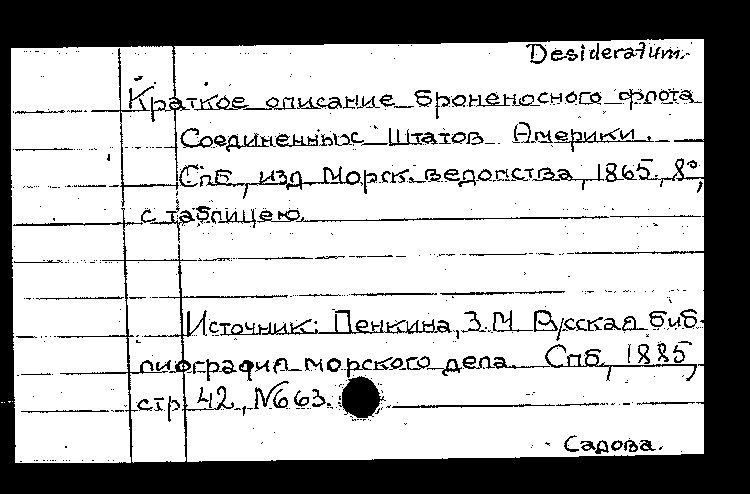 Desideratum.
Краткое описание броненосного флота
Соединенных Штатов Америки.
Спб., изд. Морск. ведомства, 1865., 8°,
с таблицею.
Источник: Пенкина, З.М. Русская биб-
лиография морского дела. Спб., 1885,
стр. 42, №663.
Садова.